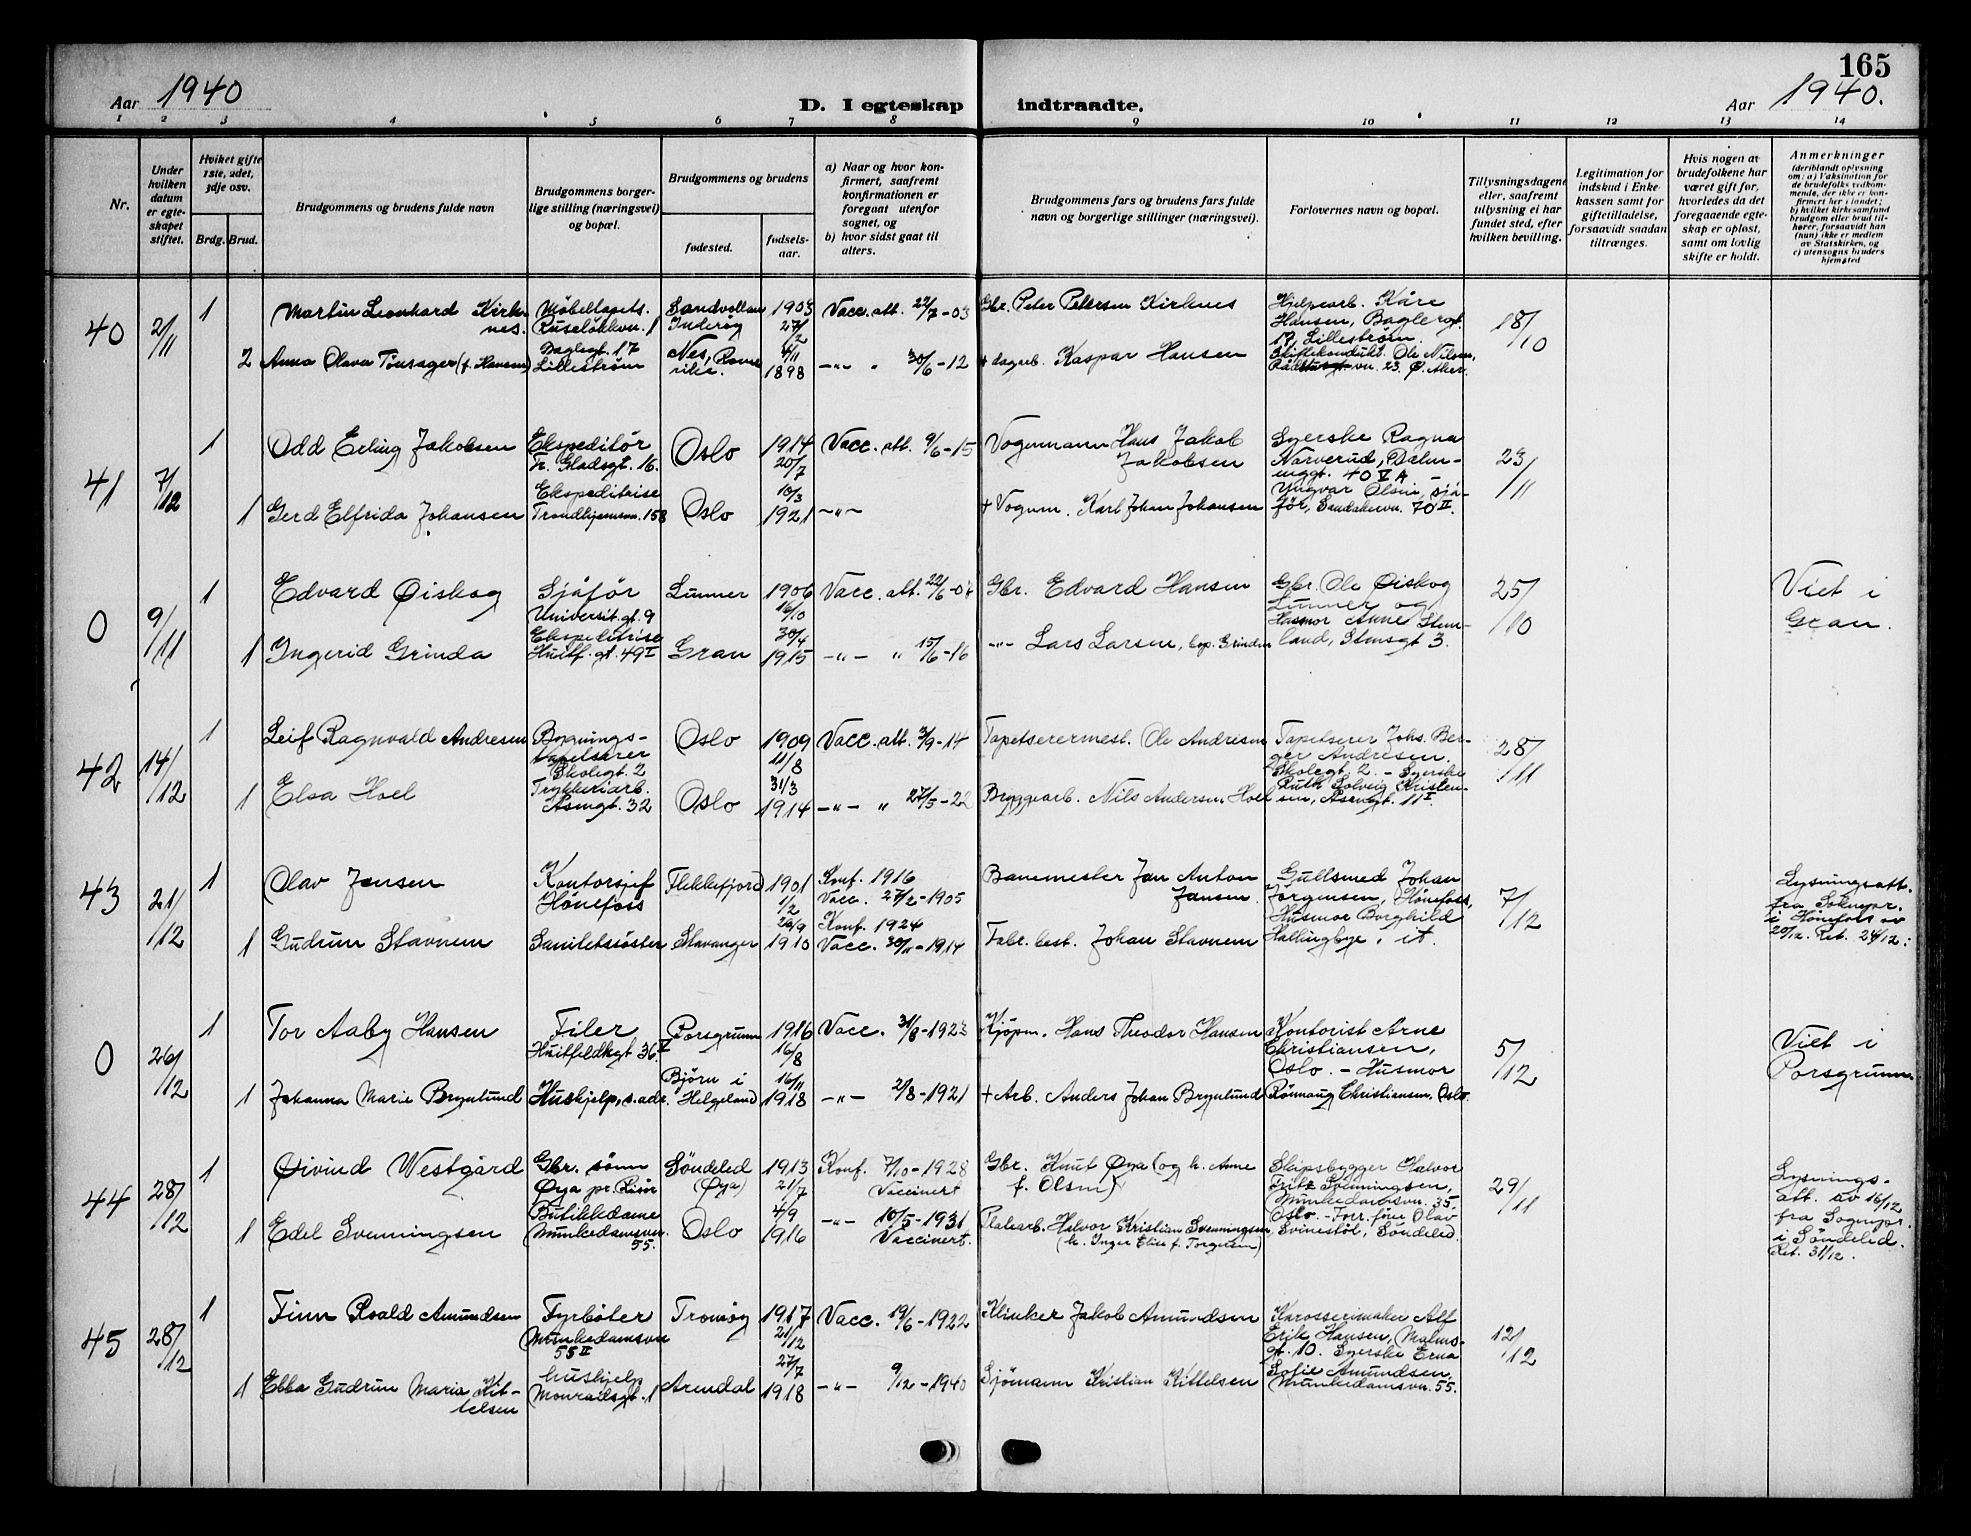 165
Aar 1940
D. I egteskap indtraadte.
Aar 1940.
1 2 3 4 5 6 7 8 9 10 11 12 13 14
Nr.
Under hvilken datum er egteskapet stiftet.
Hvilket gifte 1ste, 2det, 3dje osv.
Brdg. Brud.
Brudgommens og brudens fulde navn
Brudgommens borgerlige stilling (næringsvei) og bopæl.
Brudgommens og brudens
fødested.
fødselsaar.
a) Naar og hvor konfirmert, saafremt konfirmationen er foregaat utenfor sognet, og
b) hvor sidst gaat til alters.
Brudgommens fars og brudens fars fulde navn og borgerlige stillinger (næringsvei).
Forlovernes navn og bopæl.
Tillysningsdagene eller, saafremt tillysning ei har fundet sted, efter hvilken bevilling.
Legitimation for indskud i Enkekassen samt for giftetilladelse, forsaavidt saadan tiltrænges.
Hvis nogen av brudefolkene har været gift før, hvorledes da det foregaaende egteskap er opløst, samt om lovlig skifte er holdt.
Anmerkninger
(deriblandt oplysning om: a) Vaksination for de brudefolks vedkommende, der ikke er konfirmert her i landet; b) hvilket kirkesamfund brudgom eller brud tilhører, forsaavidt han (hun) ikke er medlem av Statskirken, og c) utensogns bruders hjemsted
40 2/11 1 Martin Leonhard Kirknes. Møbeltapets. Ruseløkkvn. 1 Sandvollan Inderøy 1903 27/2 Vacc. att. 22/7-03 Gbr. Peter Petersen Kirknes Hjelpearb. Kåre Hansen, Baglergt. 17, Lillestrøm. 18/10
2 Anna Olava Tinsager (f. Hansen) Baglegt. 17 Lillestrøm Nes, Romerike. 4/11 1898 -"- " 30/6-12 + dagarb. Kaspar Hansen Skiftekondukt. Ole Nilsen, vn. 23. Ø. Aker.
41 7/12 1 Odd Erling Jakobsen Ekspeditør Fr. Gladsgt. 16. Oslo 1914 20/7 Vacc. att. 9/6-15 Vognmann Hans Jakob Jakobsen Syerske Ragna Narverud, Dælenenggt. 40 V A 23/11
1 Gerd Elfrida Johansen Ekspeditrise Trondhjemsvn. 158 Oslo 10/3 1921 -"- + Vognm. Karl Johan Johansen Yngvar Olsen, sjåfør, Sandakervn. 70 II.
0 9/11 1 Edvard Øiskog Sjåfør Universit.gt. 9 Lunner 1906 16/10 Vacc. att. 22/6-07 Gbr. Edvard Hansen Gbr. Ole Øiskog Lunner og 25/10 Viet i Gran.
1 Ingerid Grinda Ekspeditrise Huitf. gt. 49 I Gran 30/4 1915 -"- " 15/6-16 -"- Lars Larsen, bop. Grinden Husmor Anne Stenland, Stensgt 3.
42 14/12 1 Leif Ragnvald Andresen Bygningstapetserer Skolegt. 2 Oslo 1909 11/8 Vacc. att. 3/9-14 Tapetserermest. Ole Andresen Tapetserer Johs. Berger Andresen. Skolegt. 2. - Syerske 28/11
1 Elsa Hoel Trykkeriarb. Åsengt. 32 Oslo 31/3 1914 -"- " 27/5-22 Bryggearb. Nils Andersen Hoel Ruth Solveig Kristensen, Åsengt. 11 I.
43 21/12 1 Olav Jensen Kontorsjef Hønefoss Flekkefjord 1901 1/2 Konf. 1916 Vacc. 27/2-1905 Banemester Jan Anton Jansen. Gullsmed Johan Jørgensen, Hønefoss, 7/12 Lysningsatt. fra Soknepr. i Hønefoss av 20/12. Ret. 24/12.
1 Gudrun Stavnem Sanitetssøster Stavanger 26/9 1910 Konf. 1924 Vacc. 30/11-1914 Fabr. best. Johan Stavnem Husmor Borghild Hallingbye, it.
0 26/12 1 Tor Aaby Hansen Filer Huitfeldtsgt 36 V Porsgrunn 1916 16/8 Vacc. 31/8-1923 Kjøpm. Hans Theodor Hansen Kontorist Arne Christiansen, Oslo. - Husmor 5/12 Viet i Porsgrunn.
1 Johanna Marie Brynlund Huskjelp, s.adr. Bjørn i Helgeland 16/11 1918 -"- 2/8-1921 + Arb. Anders Johan Brynlund Rønnaug Christiansen, Oslo.
44 28/12 1 Øivind Westgård Gbr. sønn Øya pr. Risør Søndeled (Øya) 1913 21/7 Konf. 7/10-1928 Vaccinert Gbr. Knut Øya (og h. Anne f. Olsen) Skipsbygger Halvor Fritz Svenningsen, Munkedamsvn. 35. 29/11 Lysningsatt. av 16/12 fra Sognepr. i Søndeled. Ret. 31/12.
1 Edel Svenningsen Butikkdame Munkedamsvn. 55. Oslo 4/9 1916 -"- 10/5-1931 Vaccinert. Platearb. Halvor Kristian Svenningsen (h. Inger Elise f. Torgersen) Oslo. - Forr.före Olav Svinestøl, Søndeled.
45 28/12 1 Finn Roald Amundsen Fyrbøter Munkedamsvn 55 II Tromøy 1917 21/12 Vacc. 19/6-1922 Klinker Jakob Amundsen Karosserimaker Alf Erik Hansen, Malmøgt. 10. Syerske Erna 12/12
1 Ebba Gudrun Maria Kittelsen huskjelp Monradsgt. 1 Arendal 27/7 1918 -"- 9/12-1940 Sjømann Kristian Kittelsen Sofie Amundsen, Munkedamsvn. 55.